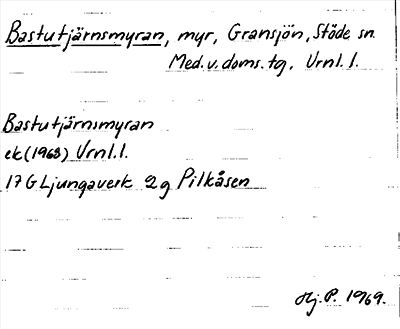 Bastutjärnsmyran, myr, Gransjön, Stöde sn.
Med. v. doms. tg, Vrnl. l.
Bastutjärnsmyran
ek (1968) Vrnl. l.
17 G Ljungaverk 2 g Pilkåsen
Hj. P. 1969.